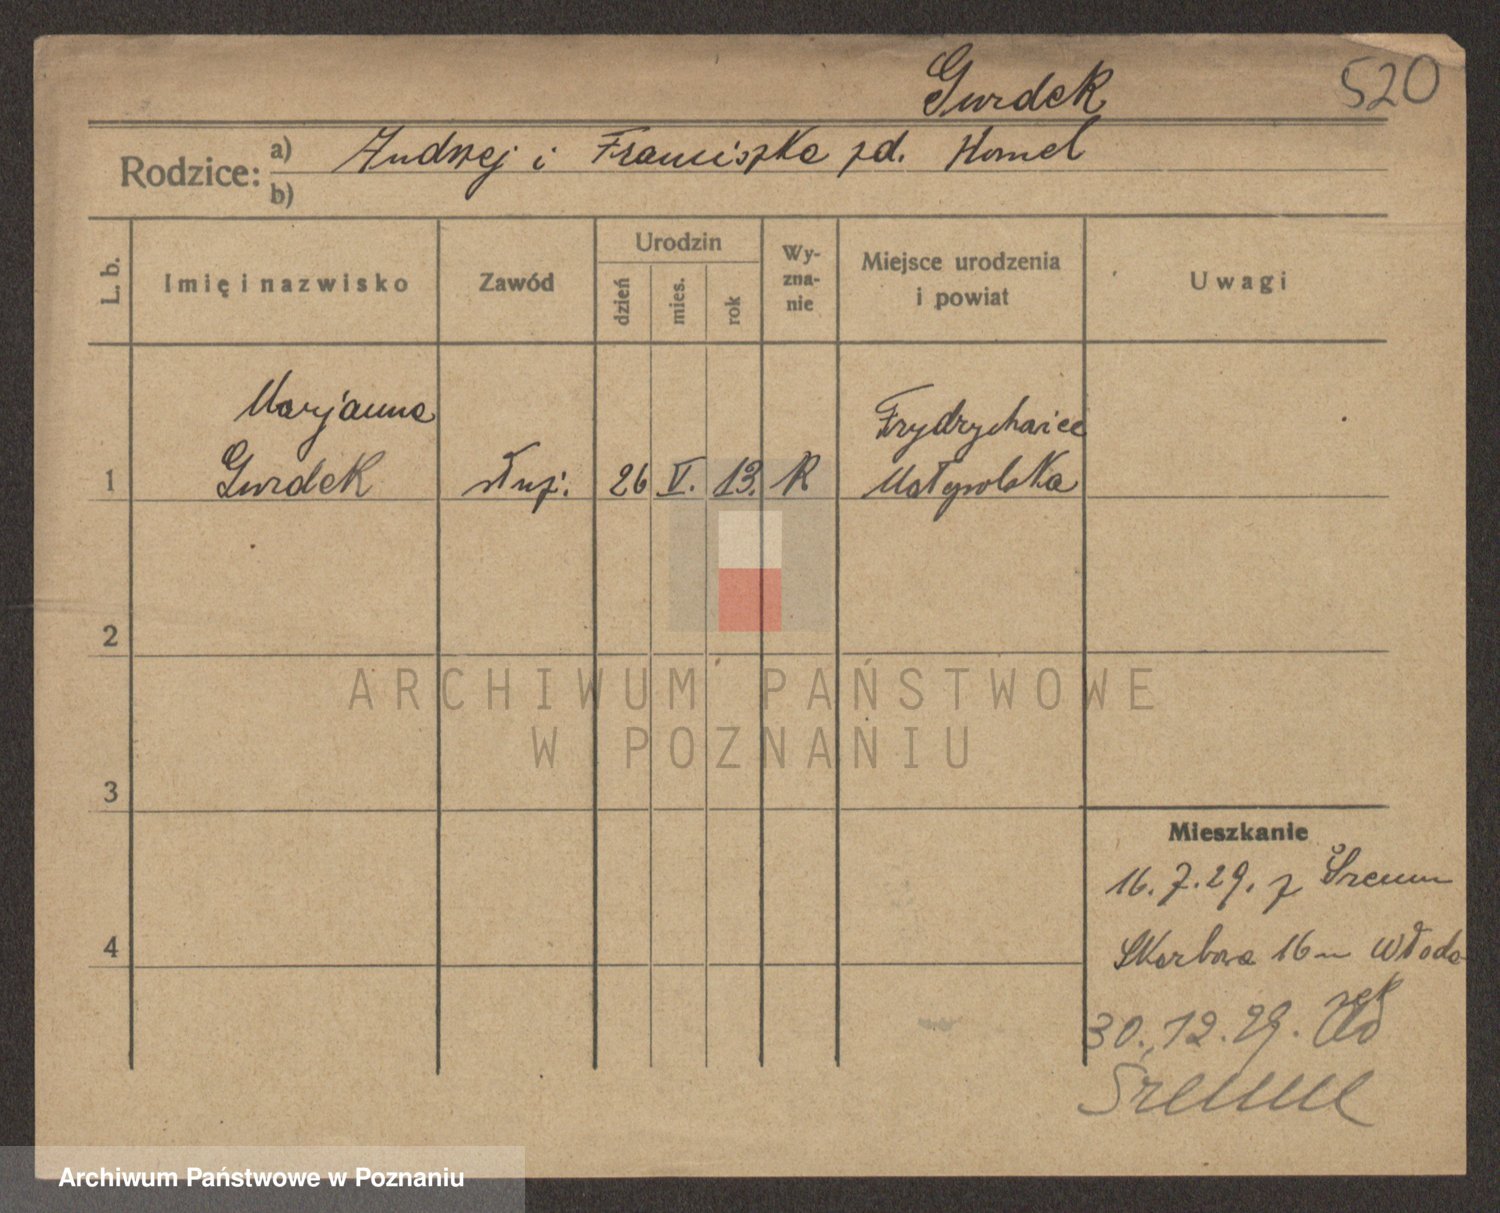 Gurdek 520
Rodzice: a) Andrzej i Franciszka zd. Homel
b)
L. b. Imię i nazwisko Zawód Urodzin dzień mies. rok Wyzna-nie Miejsce urodzenia i powiat Uwagi
Marjanna Frydrychowice
1 Gurdek służ. 26 V. 13. R Małopolska
2
ARCHIWUM PAŃSTWOWE
W POZNANIU
3
Mieszkanie
16.7.29. z Śremu
4 Skarbowa 16 m Włoda
rek
30.12.29. do
Śremu
Archiwum Państwowe w Poznaniu